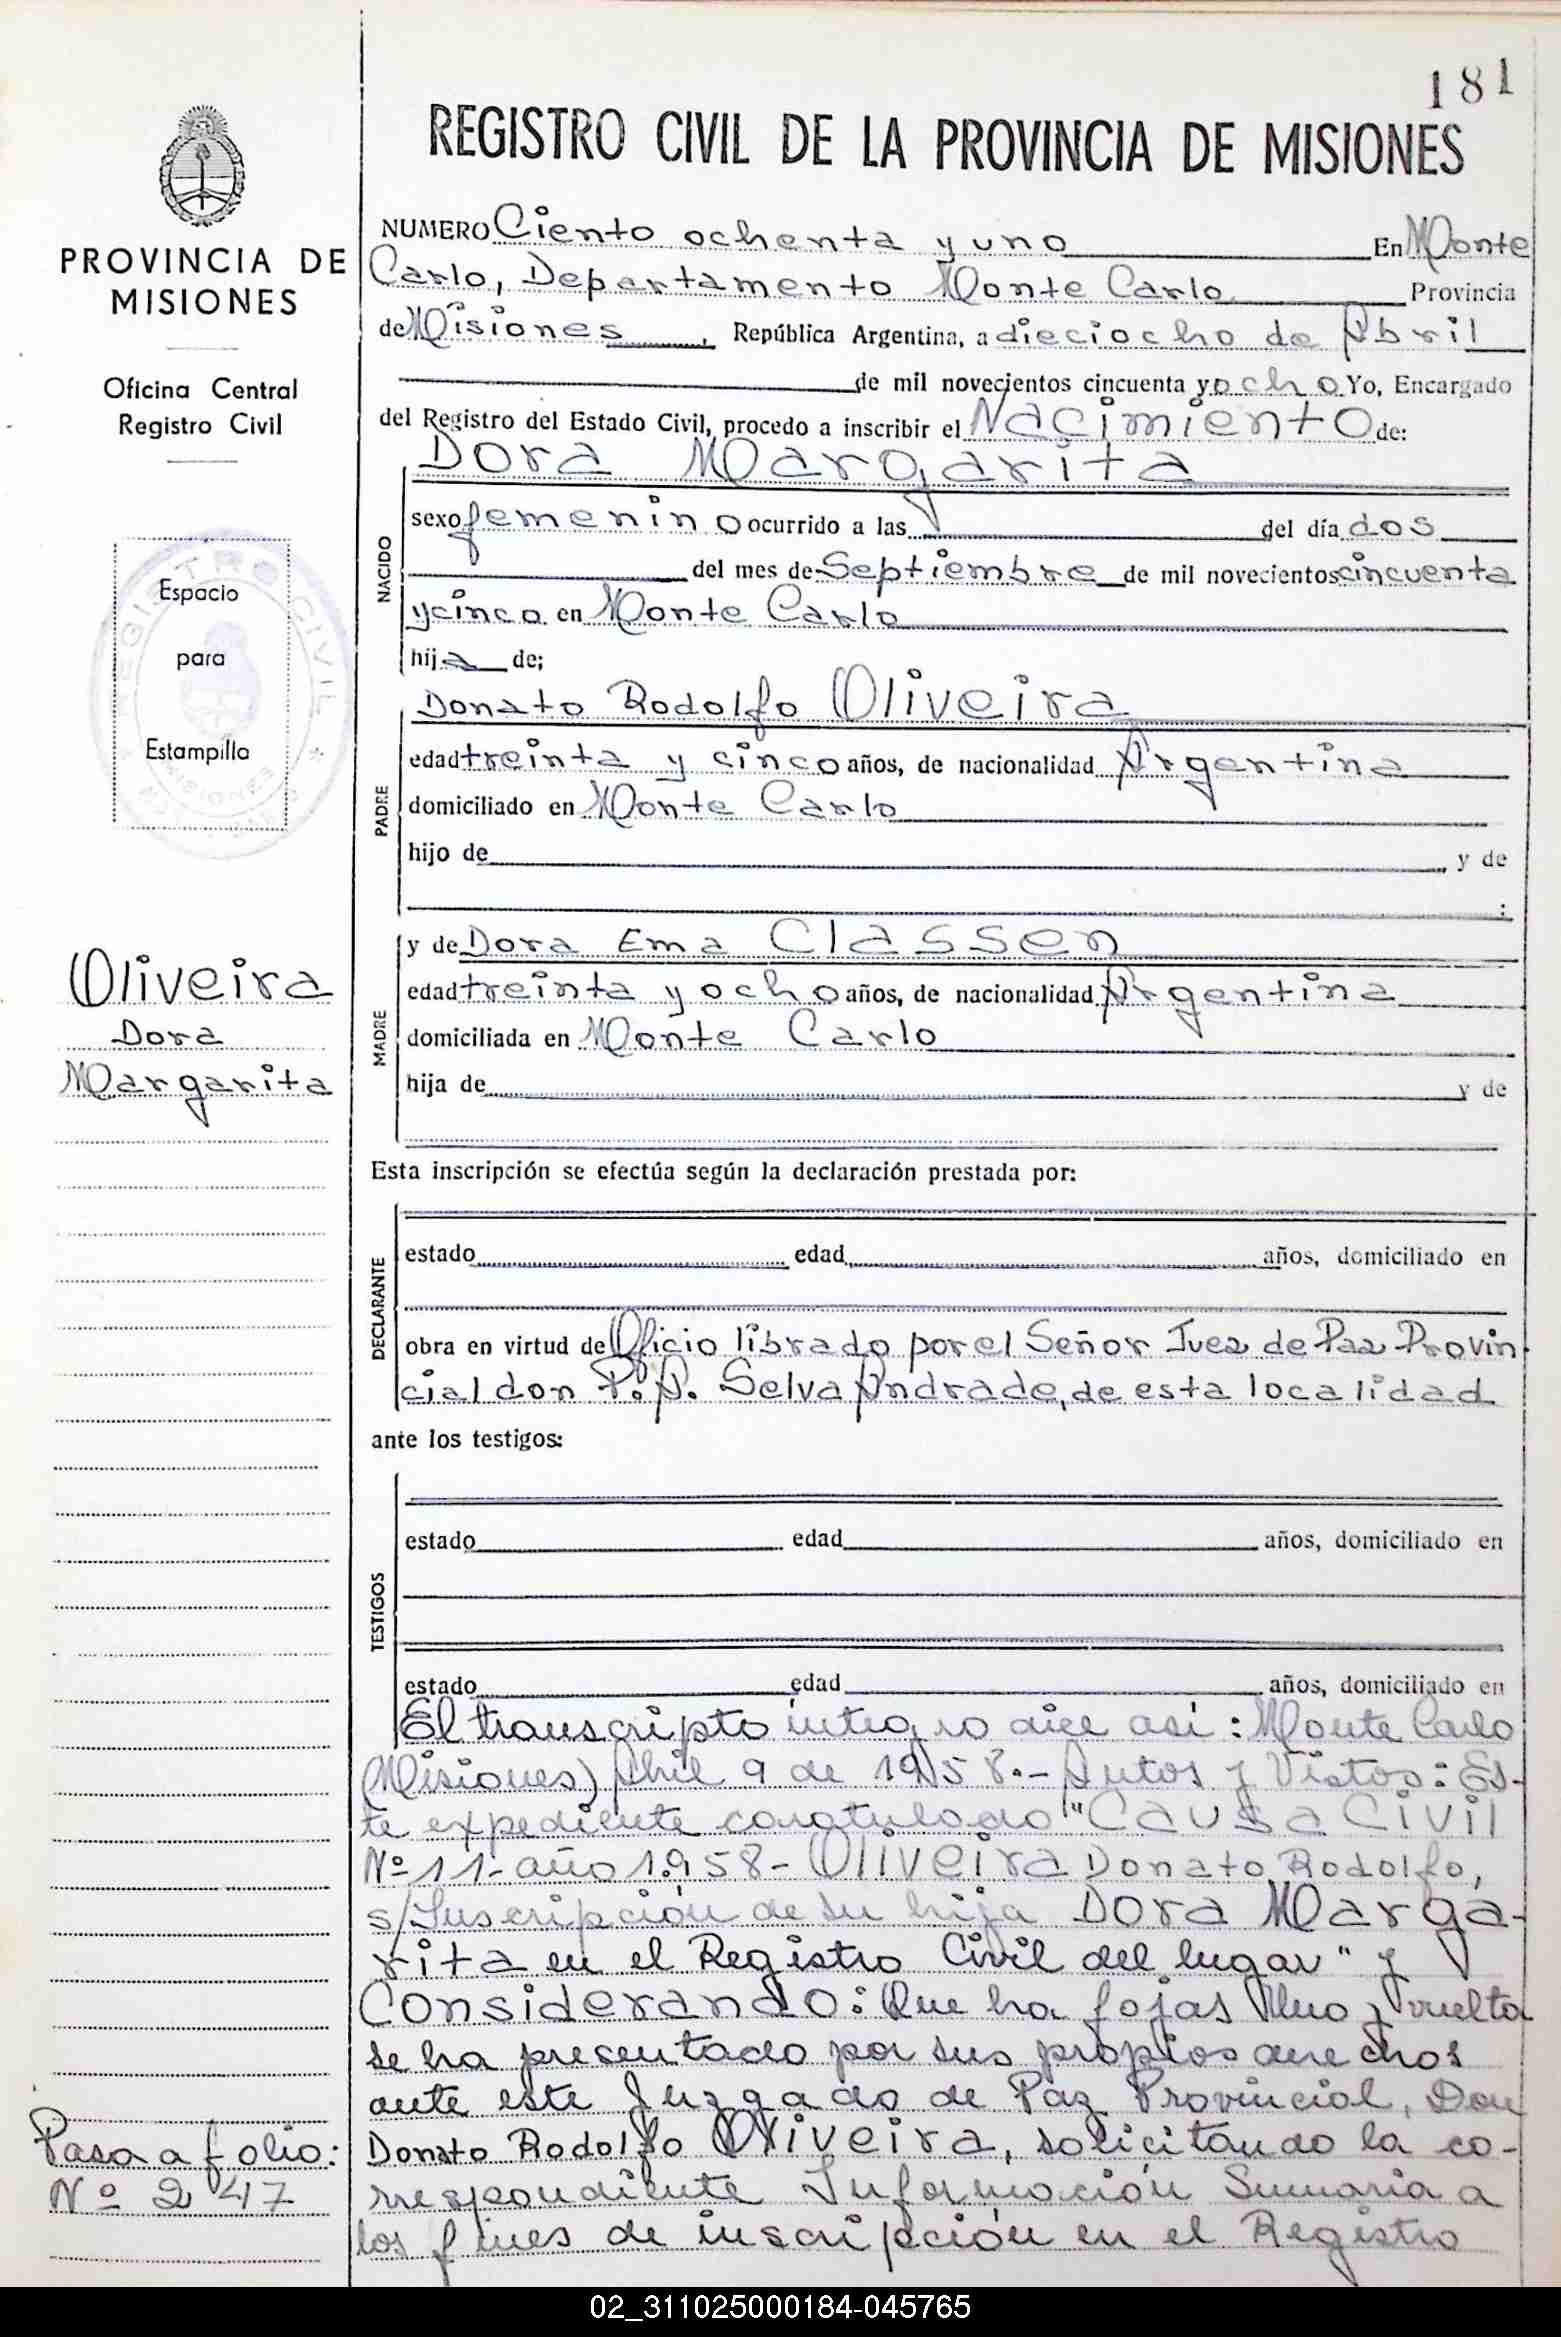 181
REGISTRO CIVIL DE LA PROVINCIA DE MISIONES
PROVINCIA DE
MISIONES
Oficina Central
Registro Civil
Espacio
para
Estampilla
REGISTRO CIVIL
MISIONES
Oliveira
Dora
Margarita
Pasa a folio:
Nº 247
NUMERO Ciento ochenta y uno En Monte
Carlo, Departamento Monte Carlo Provincia
de Misiones, República Argentina, a dieciocho de Abril
de mil novecientos cincuenta y ocho Yo, Encargado
del Registro del Estado Civil, procedo a inscribir el Nacimiento de:
Dora Margarita
NACIDO
sexo femenino ocurrido a las del día dos
del mes de Septiembre de mil novecientos cincuenta
y cinco en Monte Carlo
hija de;
Donato Rodolfo Oliveira
PADRE
edad treinta y cinco años, de nacionalidad Argentina
domiciliado en Monte Carlo
hijo de , y de
:
y de Dora Ema Classen
MADRE
edad treinta y ocho años, de nacionalidad Argentina
domiciliada en Monte Carlo
hija de y de
Esta inscripción se efectúa según la declaración prestada por:
DECLARANTE
estado edad años, domiciliado en
obra en virtud de Oficio librado por el Señor Juez de Paz Provin-
cial don P.A. Selva Andrade, de esta localidad
ante los testigos:
TESTIGOS
estado edad años, domiciliado en
estado edad años, domiciliado en
El transcripto íntegro dice así: Monte Carlo
(Misiones) Abril 9 de 1958.- Autos y Vistos: Es-
te expediente caratulado "Causa Civil
Nº 11- año 1.958- Oliveira Donato Rodolfo,
s/Inscripción de su hija Dora Marga-
rita en el Registro Civil del lugar" y
Considerando: Que ha fojas Uno y vuelta
se ha presentado por sus propios derechos
ante este Juzgado de Paz Provincial, Don
Donato Rodolfo Oliveira, solicitando la co-
rrespondiente Información Sumaria a
los fines de inscripción en el Registro
02_311025000184-045765